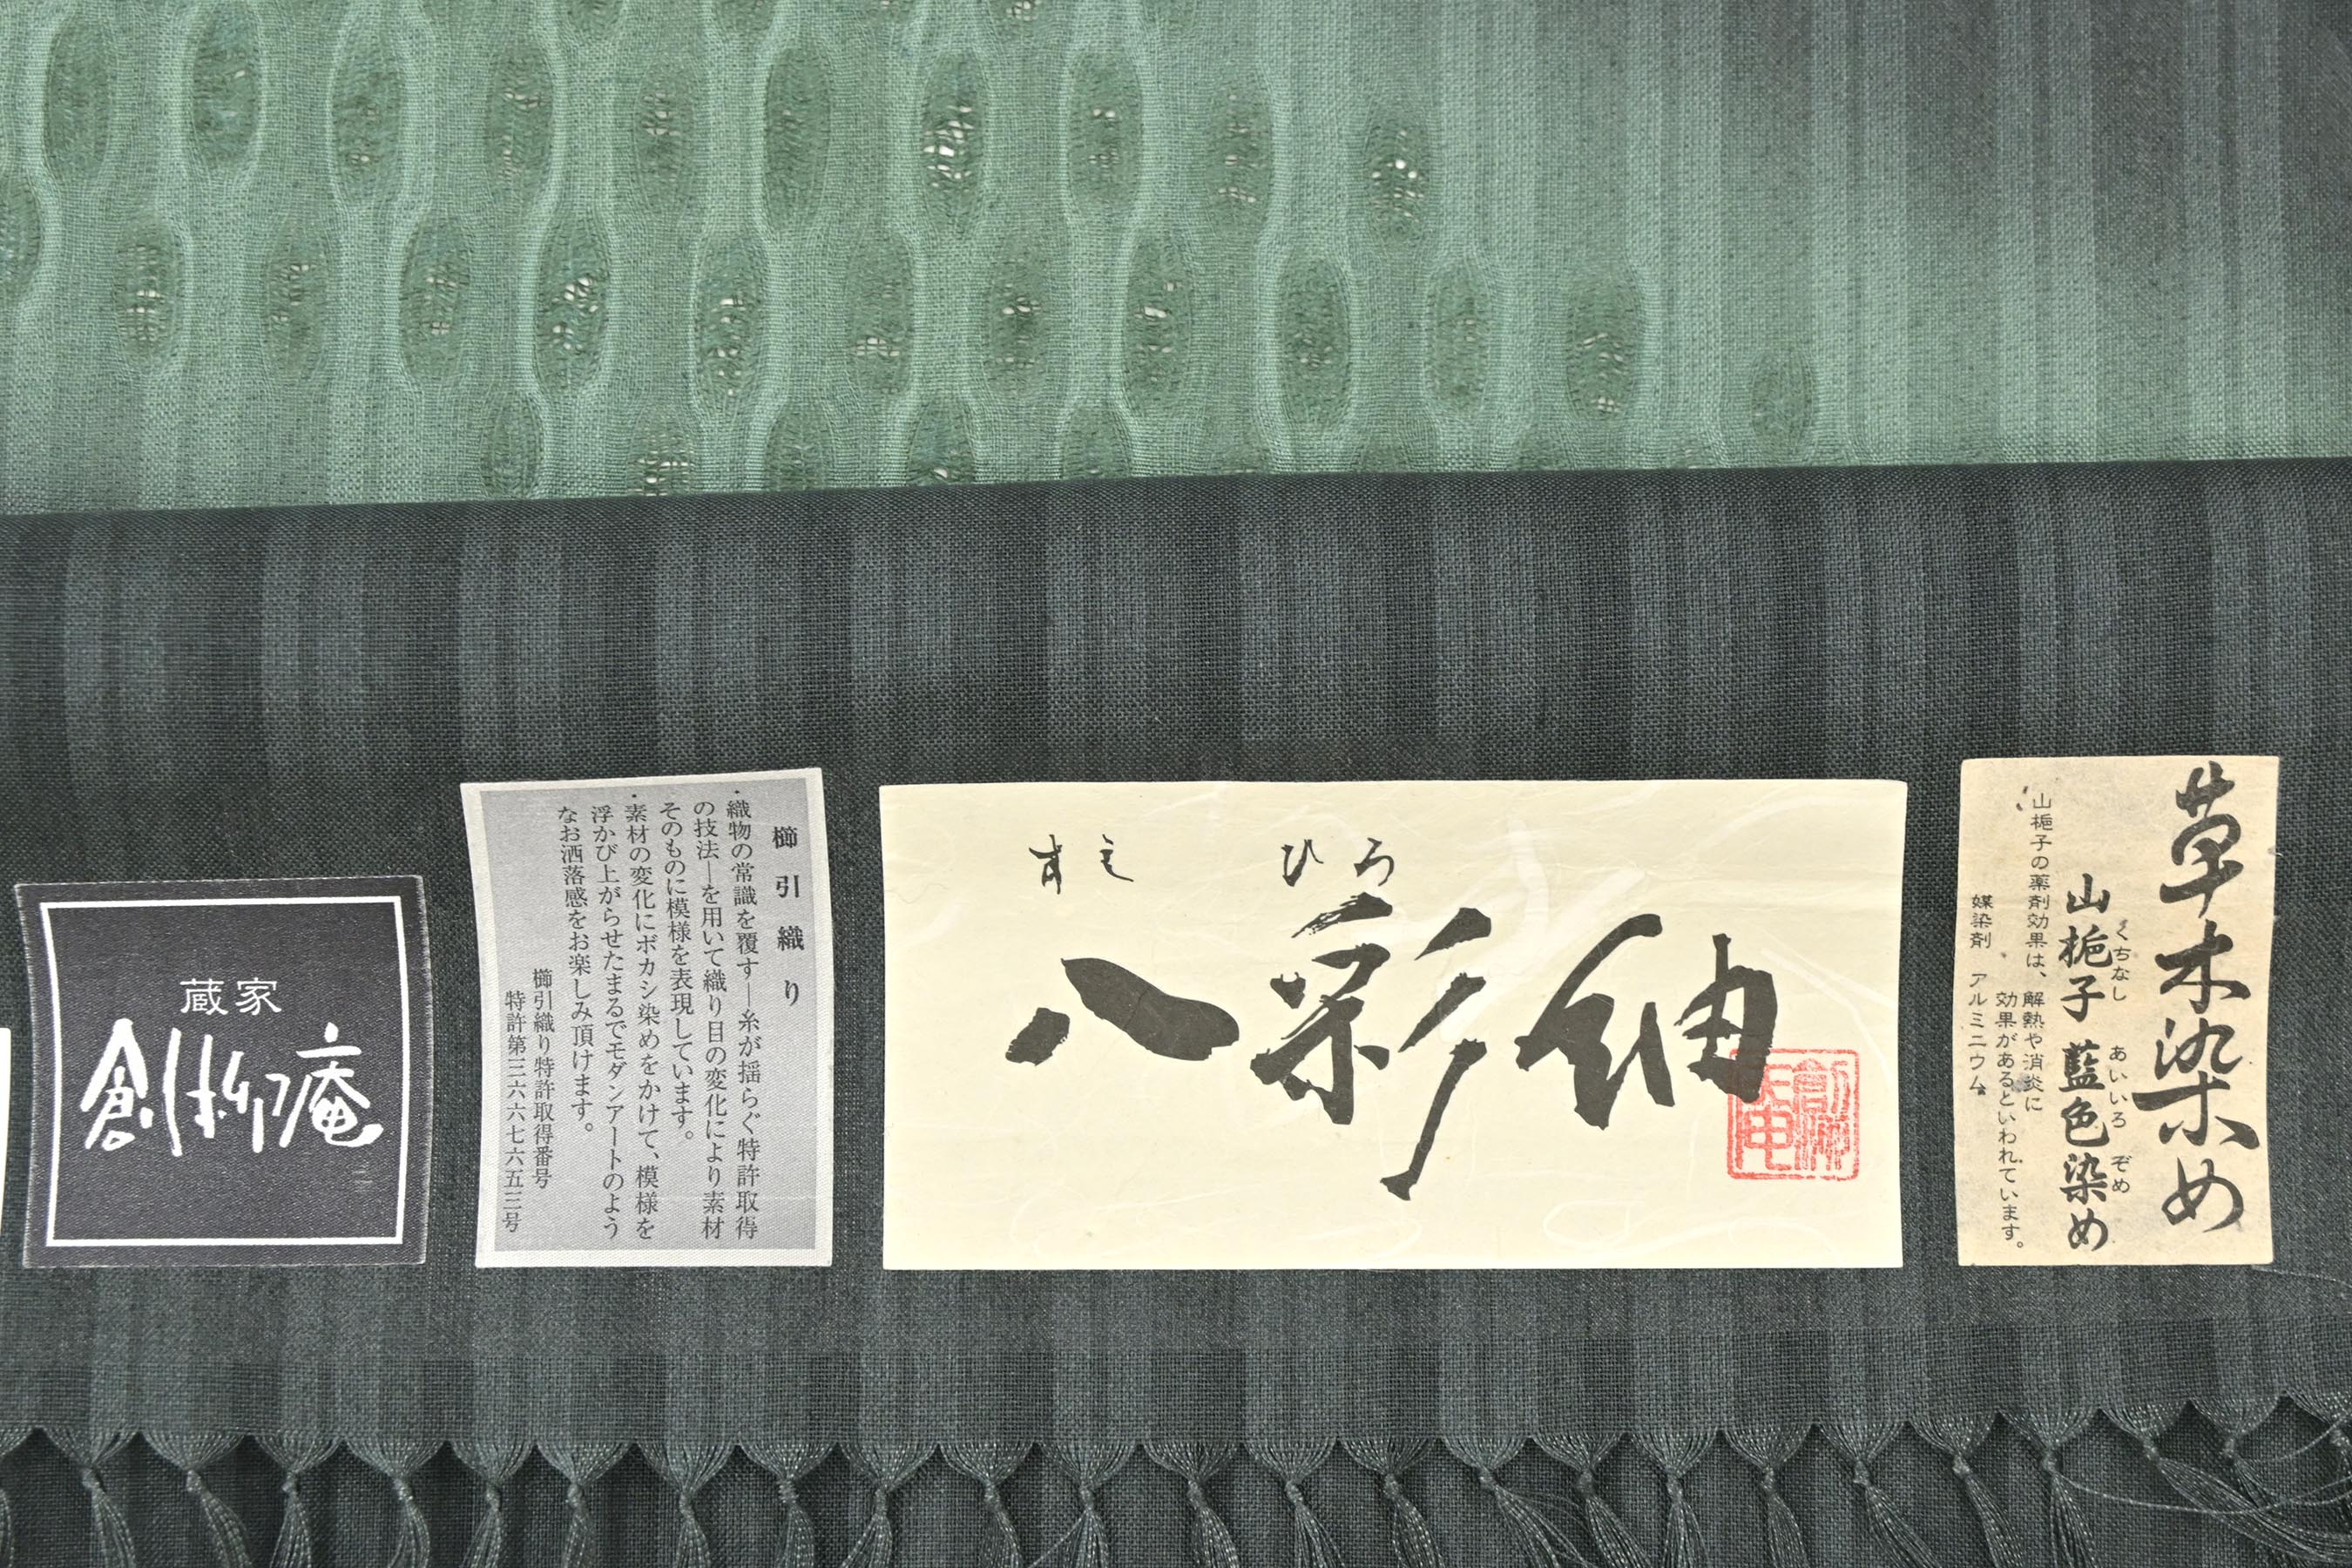 蔵家
創作工房庵
櫛引織り
・織物の常識を覆す―糸が揺らぐ特許取得
の技法―を用いて織り目の変化により素材
そのものに模様を表現しています。
・素材の変化にボカシ染めをかけて、模様を
浮かび上がらせたまるでモダンアートのよう
なお洒落感をお楽しみ頂けます。
櫛引織り特許取得番号
特許第三六六七六五三号
ひろ
八彩紬
草木染め
くちなし あいいろ ぞめ
山梔子 藍色染め
山梔子の薬剤効果は、解熱や消炎に
効果があるといわれています。
媒染剤 アルミニウム